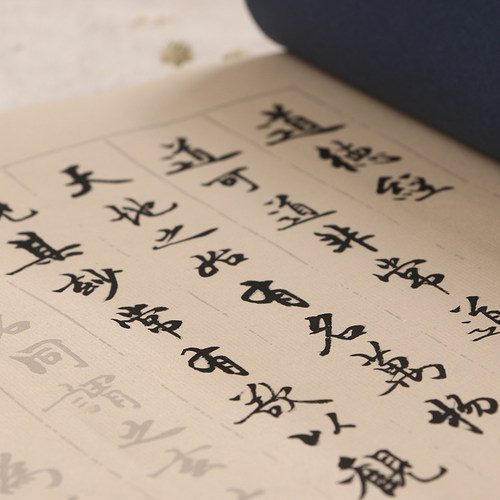 道德經
道可道非常道
天地之始有名萬物
其妙常有欲以觀
同謂之玄